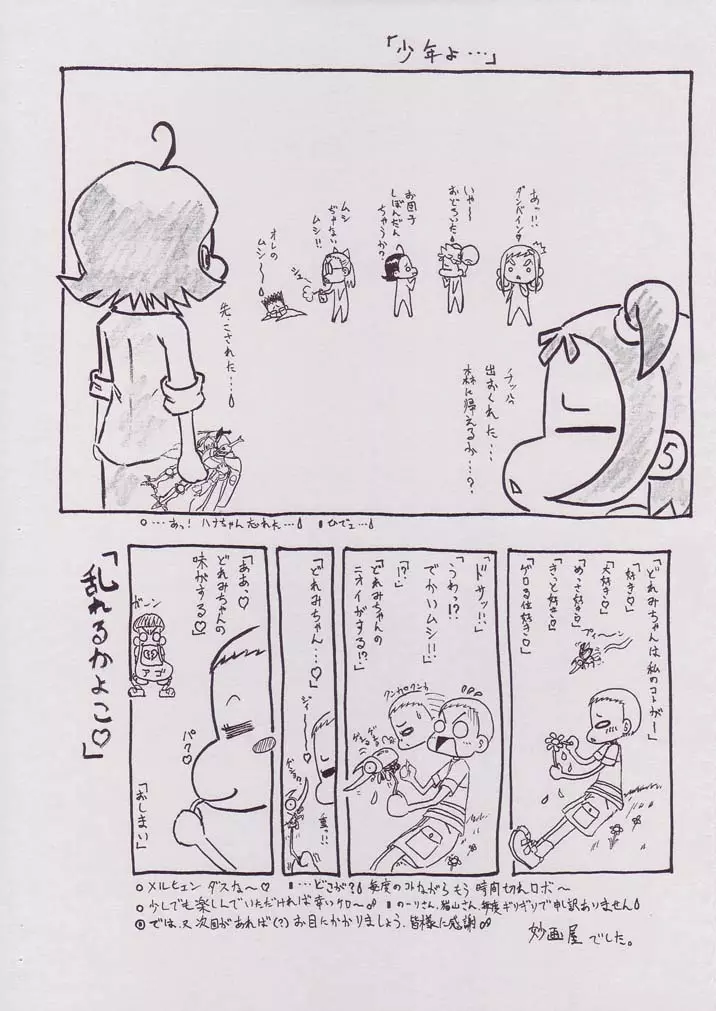 「少年よ…」
あっ!!
ダンバイン
いや〜
おどろいた
お団子
しぼんだん
ちゃうか?
ムシ
ぢゃない
ムシ!!
シュー
オレの
ムシ〜〜
先こされた…
出おくれた…
森に帰えるか…?
5
○…あっ!ハナちゃん忘れた… ●ひでェ…
「どれみちゃんは私のコトが〜」
「好き♡」
「大好き♡」
「めっさ好き♡」
「きっと好き♡」
「ゲロる位好き♡」
プィ〜ン
「ドサッ!!」
「うわっ!?
でかいムシ!!」
「!?」
「どれみちゃんの
ニオイがする!?」
クンカクンカ
ゲコゲコ
「どれみちゃん…♡」
ジィ〜〜
ゲコ?
重っ!!
「ああっ♡
どれみちゃんの
味がする♡」
ガーン
アゴ
パク♡
「おしまい」
「乱れるかよこ♡」
○メルヒェンダスな〜♡ ●…どこが? 毎度のコトながらもう時間切れロボ〜
○少しでも楽しんでいただければ幸いケロ〜 ●のーりさん、猫山さん、毎度ギリギリで申し訳ありません
◎では、又次回があれば(?)お目にかかりましょう、皆様に感謝
妙画屋でした。